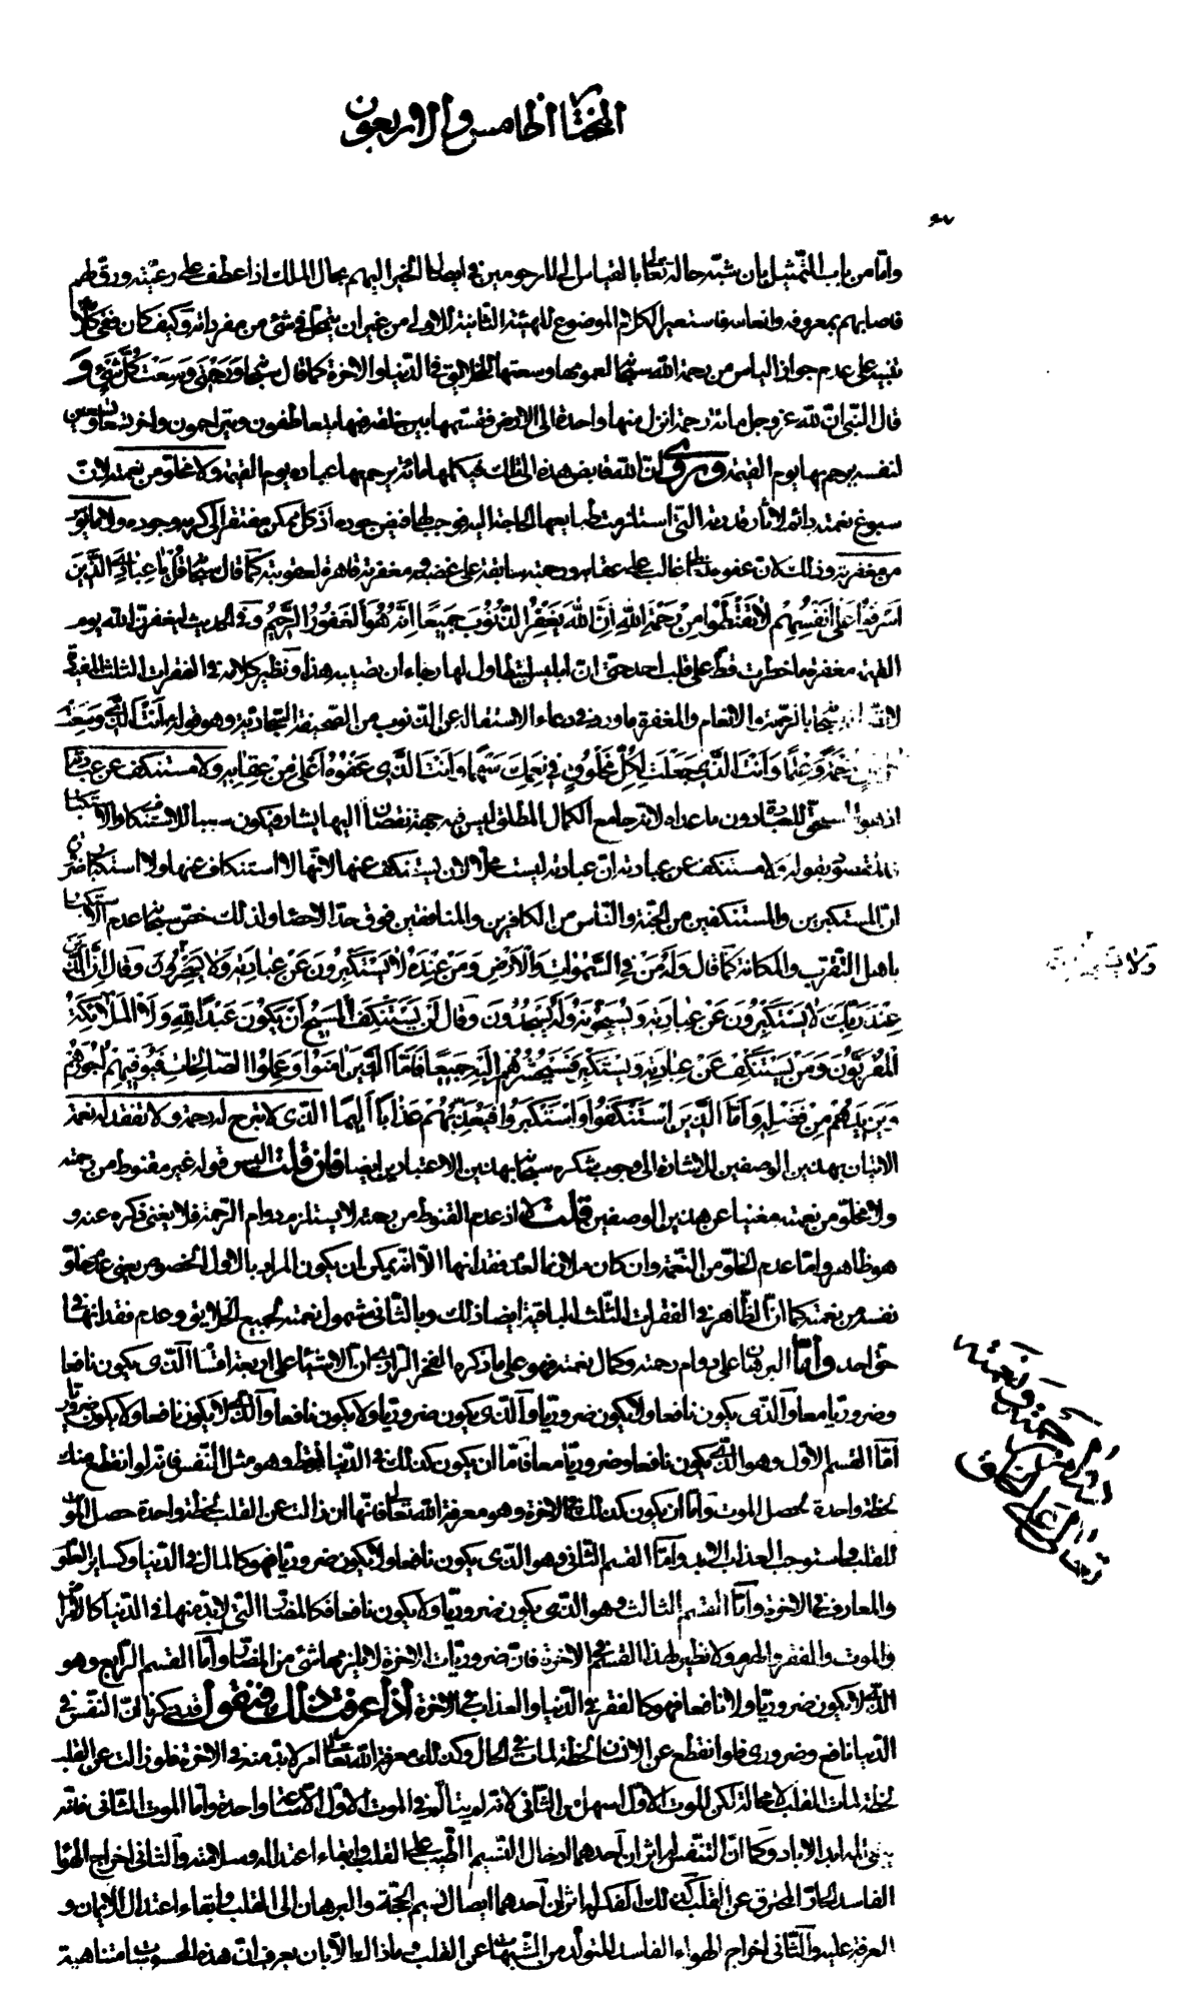 المختار الخامس والاربعون
وامّا من باب التمثيل بان شبّه حاله تعالى بالقياس الى المرحومين في ايصال الخير اليهم بحال الملك اذا عطف على رعيّته ورقّ لهم
فاصابهم بمعروفه وانعامه فاستعير الكلام الموضوع للهيئة الثانية للاولى من غير ان يتمحل في شئ من مفرداته وكيف كان ففي كلامه
تنبيه على عدم جواز الياس من رحمة الله سبحانه لعمومها وسعتها للخلايق في الدّنيا والاخرة كما قال سبحانه وَرَحْمَتي وَسِعَتْ كُلَّ شَيْءٍ و
قال النّبي انّ لله عزّ وجل مائة رحمة انزل منها واحدة الى الارض فقسّمها بين خلقه فبها يتعاطفون ويتراحمون واخر تسعا وتسعين
لنفسه يرحم بها يوم القيمة وروى انّ الله قابض هذه الى تلك فيكملها مائة يرحم بها عباده يوم القيمة ولا مخلوّ من نعمته لانّ
سبوغ نعمته دائم لاثار قدرته التي استلزمت طبايعها الحاجة اليه فوجب لها فيض جوده اذ كل ممكن مفتقر الى كرم وجوده ولا مايوس
من مغفرته وذلك لان عفوه تعالى غالب على عقابه ورحمته سابقة على غضبه ومغفرته قاهرة لعقوبته كما قال سبحانه قُلْ يا عِبادِيَ الَّذينَ
اَسْرَفُوا عَلى اَنْفُسِهِمْ لا تَقْنَطُوا مِنْ رَحْمَةِ اللهِ اِنَّ اللهَ يَغْفِرُ الذُّنُوبَ جَميعًا اِنَّهُ هُوَ الْغَفُورُ الرَّحيمُ وفي الحديث ليغفرنّ الله يوم
القيمة مغفرة ما خطرت قطّ على قلب احد حتى انّ ابليس ليتطاول لها رجاء ان تصيبه هذا ونظير كلامه في الفقرات الثلث المفيدة
سبحانه بالرحمة والانعام والمغفرة ما ورد في دعاء الاستقالة عن الذّنوب من الصّحيفة السّجادية وهو قوله اَنْتَ الَّذي وَسِعْتَ
رَحْمَةً وَعِلْمًا وَاَنْتَ الَّذي جَعَلْتَ لِكُلِّ مَخْلُوقٍ في نِعَمِكَ سَهْمًا وَاَنْتَ الَّذي عَفْوُهُ اَعْلى مِنْ عِقابِهِ ولا مستنكف عن عبادته
اذ هو المستحق للعبادة دون ما عداه لانّه جامع الكمال المطلق ليس فيه جهة نقصان اليها يشار فيكون سببا للاستنكاف والاستكبار
بقوله ولا مستنكف عن عبادته انّ عبادته ليست محلا لان يستنكف عنها لا انّها لا استنكاف عنها ولا استكبار ضرورة
انّ المستكبرين والمستنكفين من الجنّة والنّاس من الكافرين والمنافقين فوق حدّ الاحصاء ولذلك خصّ سبحانه عدم الاستكبار
باهل التّقرّب والمكانة كما قال وَلَهُ مَنْ فِي السَّمواتِ وَالْاَرْضِ وَمَنْ عِنْدَهُ لا يَسْتَكْبِرُونَ عَنْ عِبادَتِهِ وَلا يَسْتَحْسِرُونَ وقال اِنَّ الَّذينَ
عِنْدَ رَبِّكَ لا يَسْتَكْبِرُونَ عَنْ عِبادَتِهِ وَيُسَبِّحُونَهُ وَلَهُ يَسْجُدُونَ وقال لَنْ يَسْتَنْكِفَ الْمَسيحُ اَنْ يَكُونَ عَبْدًا لِلّهِ وَلَا الْمَلائِكَةُ
الْمُقَرَّبُونَ وَمَنْ يَسْتَنْكِفْ عَنْ عِبادَتِهِ وَيَسْتَكْبِرْ فَسَيَحْشُرُهُمْ اِلَيْهِ جَميعًا فَاَمَّا الَّذينَ امَنُوا وَعَمِلُوا الصّالِحاتِ فَيُوَفّيهِمْ اُجُورَهُمْ
وَيَزيدُهُمْ مِنْ فَضْلِهِ وَاَمَّا الَّذينَ اسْتَنْكَفُوا وَاسْتَكْبَرُوا فَيُعَذِّبُهُمْ عَذابًا اَليمًا الذي لا تبرح له رحمة ولا تفقد له نعمة
الاتيان بهذين الوصفين للاشارة الى وجوب شكره سبحانه بهذين الاعتبارين ايضا فان قلت اليس قوله غير مقنوط من رحمته
ولا مخلوّ من نعمته مغنيا عن هذين الوصفين قلت لا اذ عدم القنوط من رحمته لا يستلزم دوام الرّحمة فلا يغنى ذكره عنه و
هو ظاهر وامّا عدم الخلوّ من النّعمة وان كان ملازما لعدم فقدانها الّا انّه يمكن ان يكون المراد بالاول الخصوص يعنى عدم خلوّ
نفسه من نعمته كما انّ الظّاهر في الفقرات الثّلث الباقية ايضا ذلك وبالثّانى شمول نعمته لجميع الخلايق وعدم فقدانها في
حقّ احد وامّا البرهان على دوام رحمته وكمال نعمته فهو على ما ذكره الفخر الرّازى انّ الاشياء على اربعة اقسام الّذى يكون نافعا
وضروريّا معا والّذى يكون نافعا ولا يكون ضروريّا والّذى يكون ضروريّا ولا يكون نافعا والّذى لا يكون نافعا ولا يكون ضروريّا
امّا القسم الاوّل وهو الّذى يكون نافعا وضروريّا معا فامّا ان يكون كذلك في الدّنيا فقط وهو مثل النّفس فانّه لو انقطع منك
لحظة واحدة لحصل الموت وامّا ان يكون كذلك في الاخرة وهو معرفة الله تعالى فانّها ان زالت عن القلب لحظة واحدة حصل الموت
للقلب واستوجب العذاب الابد وامّا القسم الثّانى وهو الّذى يكون نافعا ولا يكون ضروريّا فهو كالمال في الدّنيا وكسائر العلوم
والمعارف في الاخرة وامّا القسم الثالث وهو الّذى يكون ضروريّا ولا يكون نافعا فكالمضارّ الّتى لا بدّ منها في الدّنيا كالامراض
والموت والفقر والهرم ولا نظير لهذا القسم في الاخرة فانّ ضروريّات الاخرة لا يلزمها شئ من المضارّ وامّا القسم الرّابع وهو
الّذى لا يكون ضروريّا ولا نافعا فهو كالفقر في الدّنيا والعذاب في الاخرة اذا عرفت ذلك فنقول قد ذكرنا انّ النّفس في
الدّنيا نافع وضرورى فلو انقطع عن الانسان لحظة لمات في الحال وكذلك معرفة الله تعالى امر لا بدّ منه في الاخرة فلو زالت عن القلب
لحظة لمات القلب لا محالة لكن الموت الاوّل اسهل من الثّانى لانّه لم يتألّم في الموت الاوّل الّا ساعة واحدة وامّا الموت الثّانى فانّه
يبقى المه ابد الاباد وكما انّ التنفّس له اثران احدهما ادخال النّسيم الطّيب على القلب وابقاء اعتداله وسلامته والثّانى اخراج الهواء
الفاسد الحارّ المحترق عن القلب كذلك الفكر له اثران احدهما ايصال نسيم الحجّة والبرهان الى القلب وابقاء اعتدال الايمان و
المعرفة عليه والثّانى اخراج الهواء الفاسد المتولّد من الشّبهات عن القلب وما ذاك الّا بان يعرف انّ هذه المحسوسات متناهية
دوام رحمته ونعمته
تعالى على الخلق